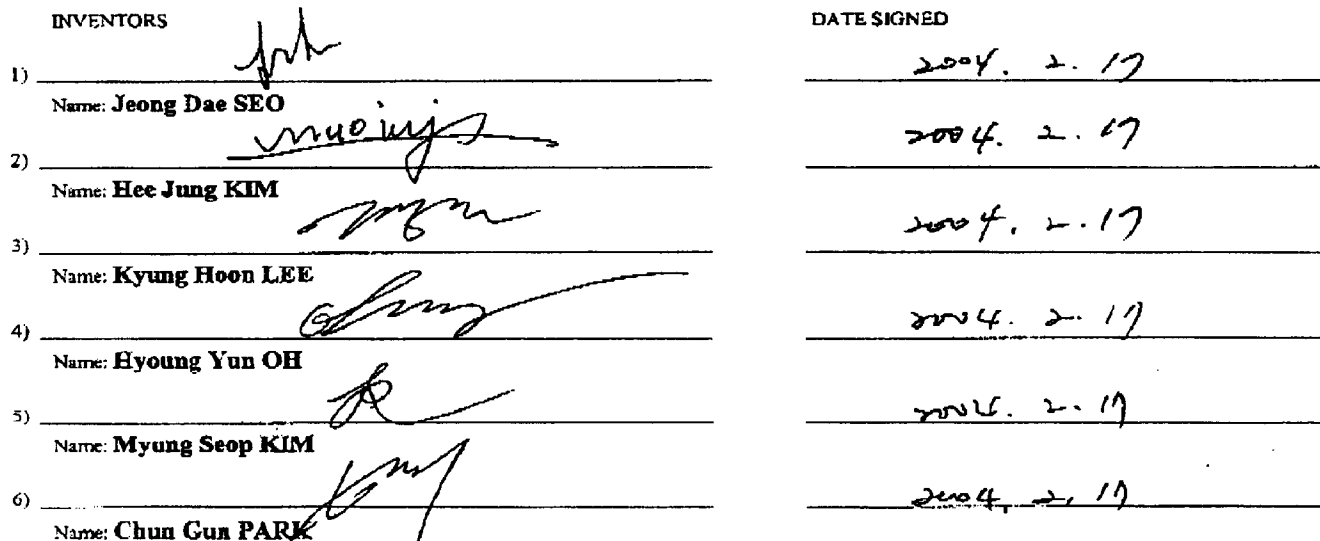 INVENTORS DATE SIGNED
1) 2004. 2. 17
Name: Jeong Dae SEO
2) 2004. 2. 17
Name: Hee Jung KIM
3) 2004. 2. 17
Name: Kyung Hoon LEE
4) 2004. 2. 17
Name: Hyoung Yun OH
5) 2004. 2. 17
Name: Myung Seop KIM
6) 2004, 2, 17
Name: Chun Gun PARK